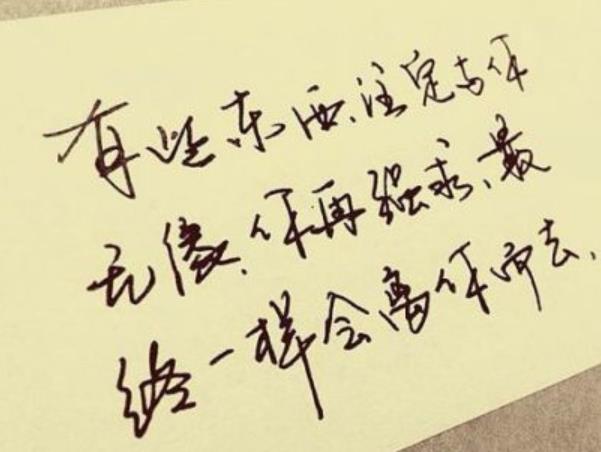 有些东西、注定与你
无缘、你再强求、最
终一样会离你而去、